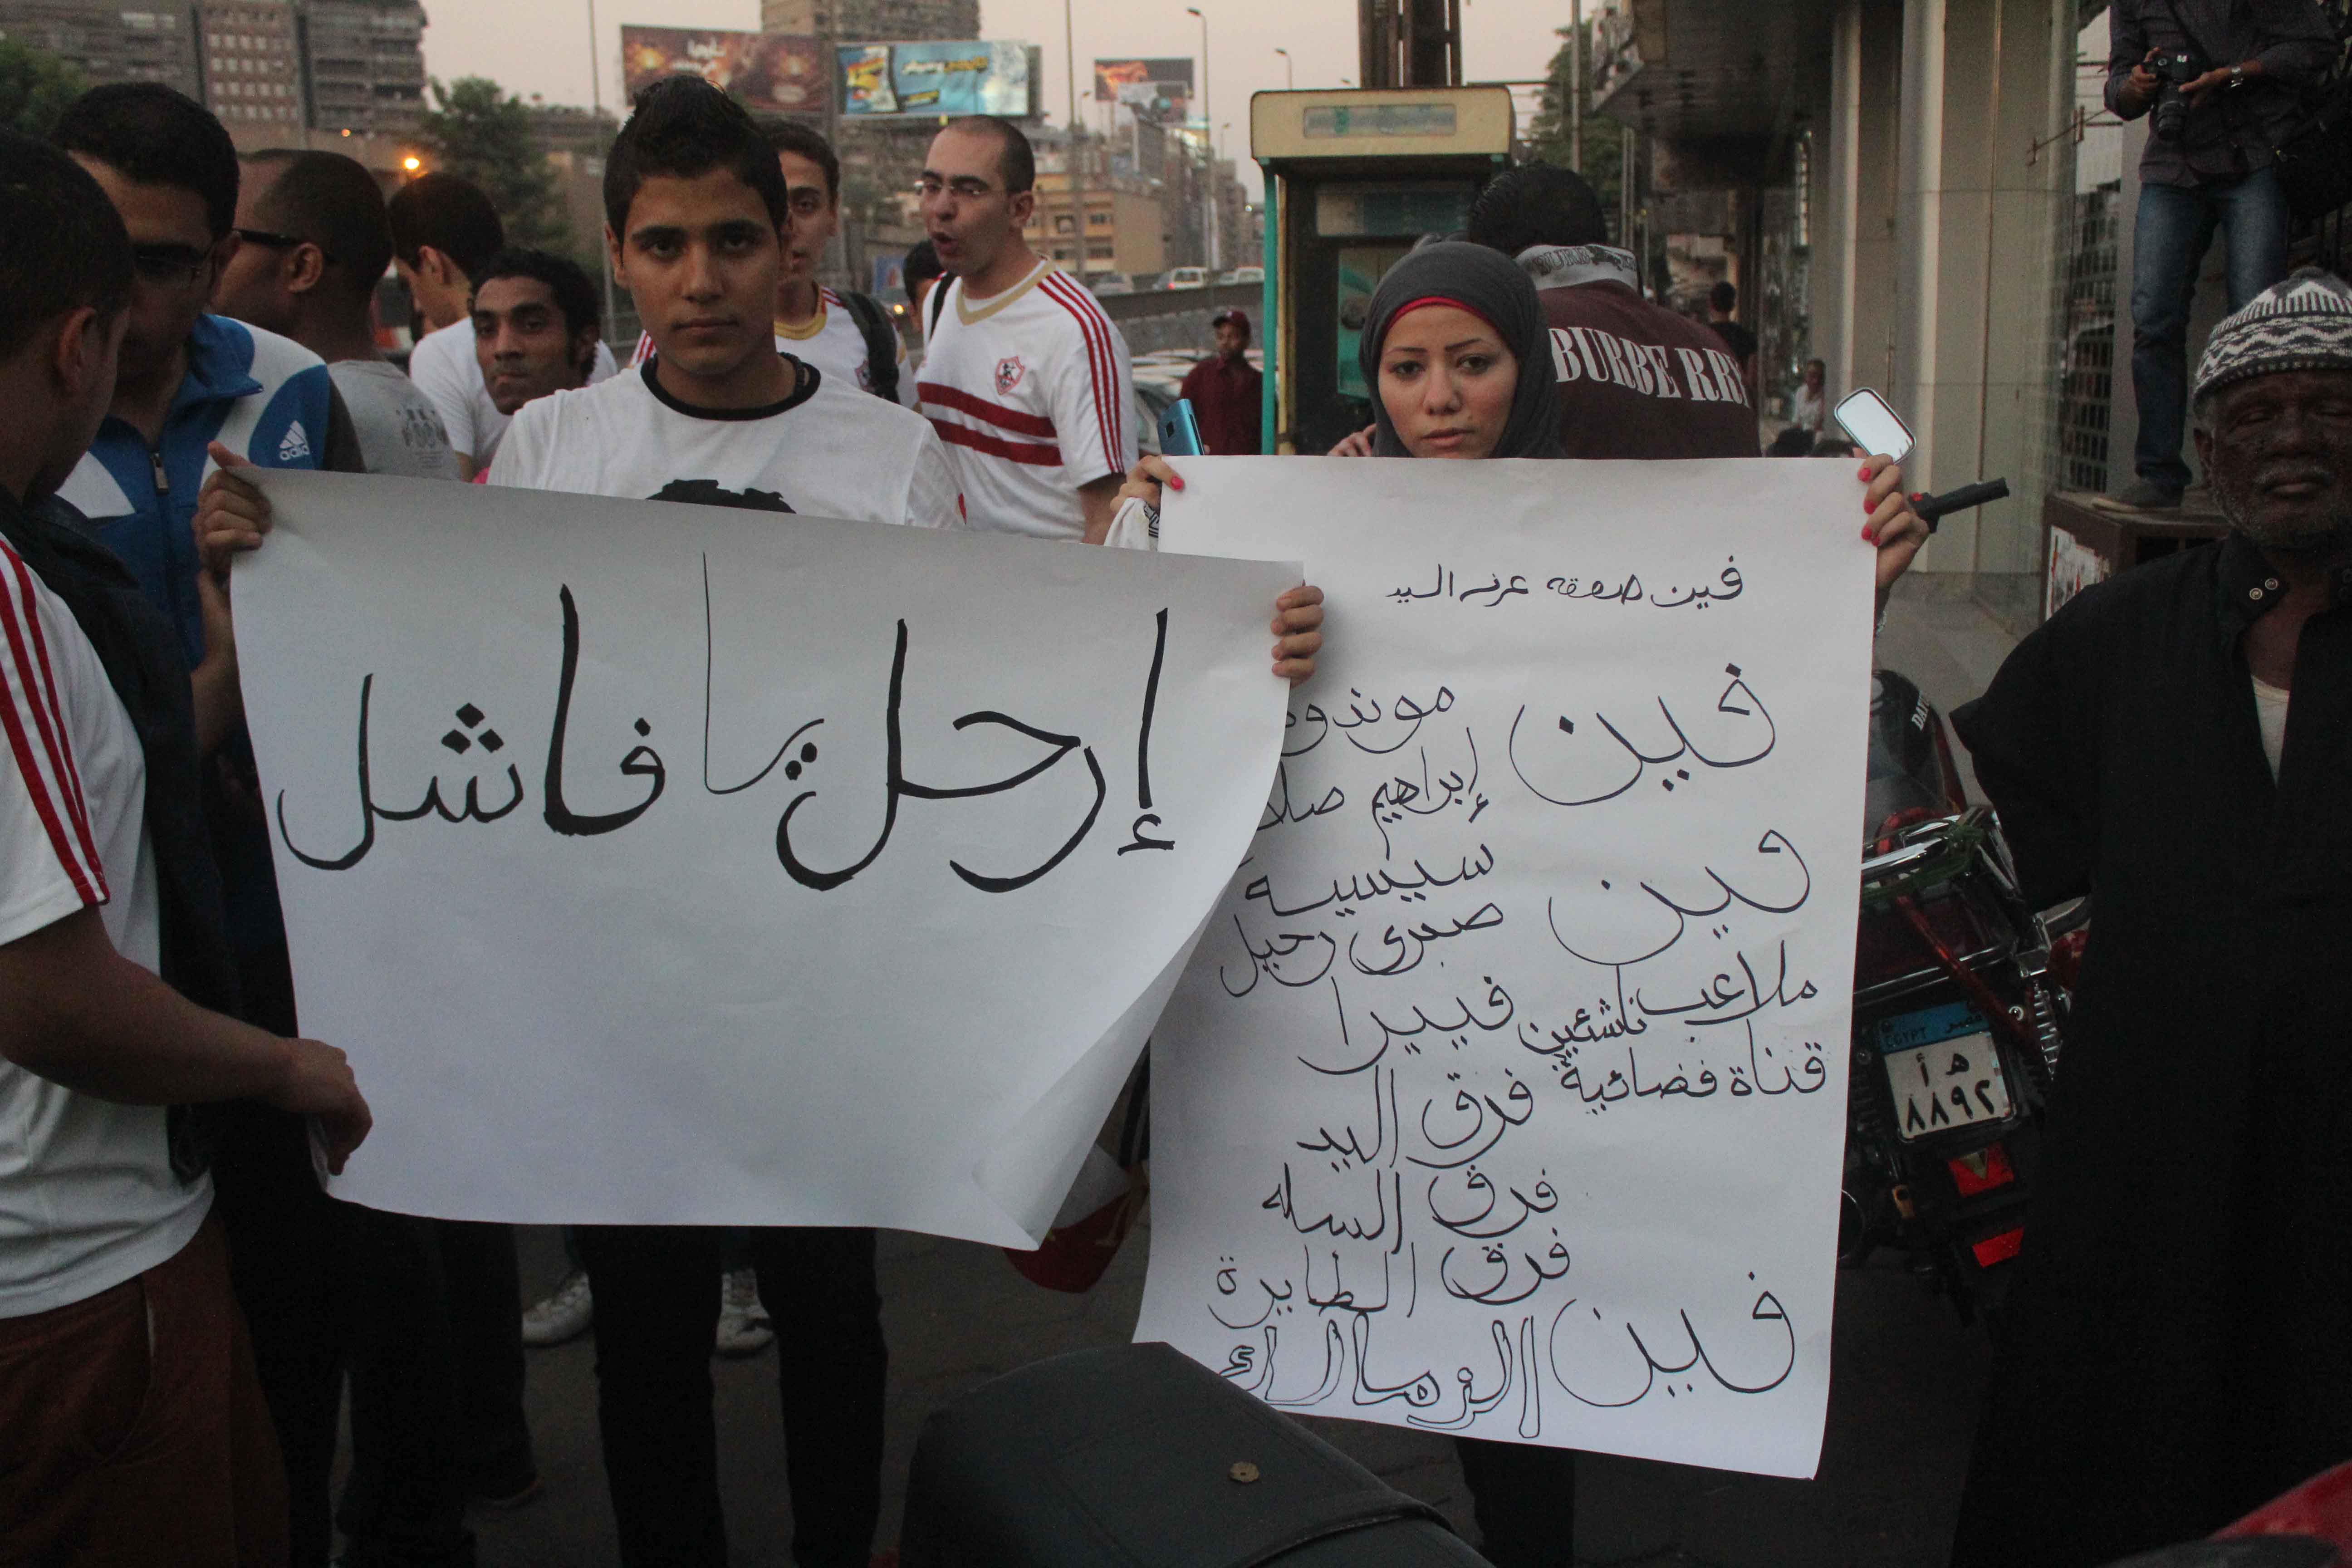 إرحل يا فاشل
فين صفقه عرنه السيد
فين
إبراهيم
فين
سيسيه
صبرى رحيل
ملاعب ناشئين
فييرا
قناة فضائية
فرق اليد
فرق السله
فرق الطايرة
فين الزمالك
BURBERRY
adidas
EGYPT مصر
أ ه
٨٨٩٢